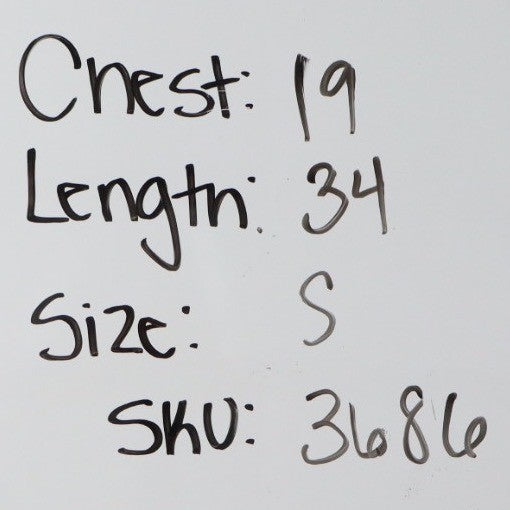 Chest: 19
Length: 34
Size: S
SKU: 3686